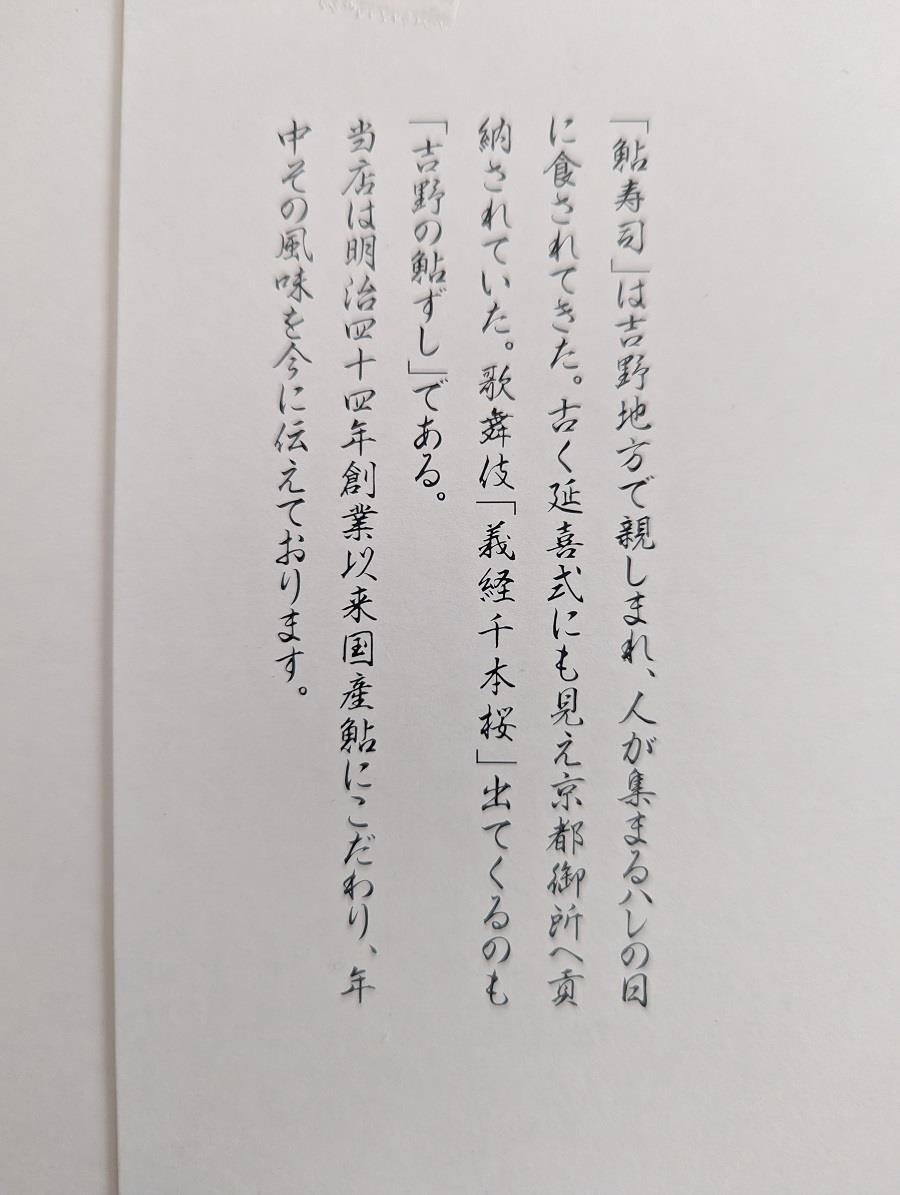 「鮎寿司」は吉野地方で親しまれ、人が集まるハレの日
に食されてきた。古く延喜式にも見え京都御所へ貢
納されていた。歌舞伎「義経千本桜」出てくるのも
「吉野の鮎ずし」である。
当店は明治四十四年創業以来国産鮎にこだわり、年
中その風味を今に伝えております。